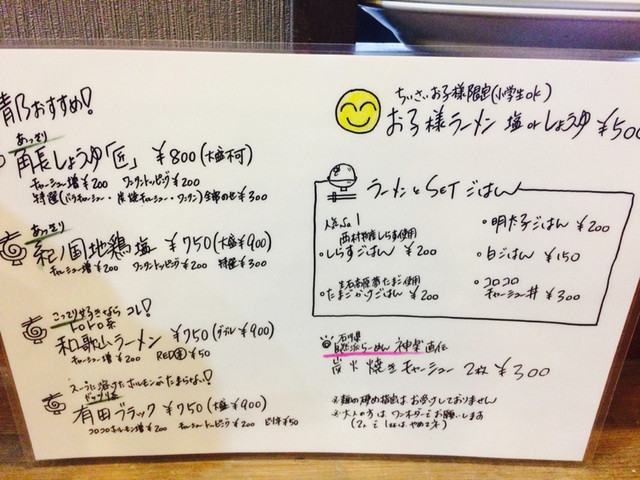 おすすめ!
あっさり
角長しょうゆ「匠」 ¥800(大盛不可)
チャーシュー増¥200 ワンタントッピング¥200
特選(バラチャーシュー・炭焼チャーシュー・ワンタン)全部のせ¥300
あっさり
紀ノ国地鶏塩 ¥750(大盛¥900)
チャーシュー増¥200 ワンタントッピング¥200 特選¥300
こってり好きなら コレ!
トロトロ系
和歌山ラーメン ¥750(ダブル¥900)
チャーシュー増¥200 RED ¥50
スープに溶けたホルモンがたまらない!
有田ブラック ¥750(大盛¥900)
コロコロホルモン増¥200 チャーシュートッピング¥200 ¥50
ちいさいお子様限定(小学生ok)
お子様ラーメン 塩orしょうゆ ¥500
ラーメンとSETごはん
人気No.1
西村物産しらす使用
・しらすごはん ¥200
生石高原の赤たまご使用
・たまごかけごはん ¥200
・明太子ごはん ¥200
・白ごはん ¥150
・コロコロ
チャーシュー丼 ¥300
石川県
自然派らーめん 神楽直伝
炭火焼きチャーシュー 2枚 ¥300
※麺の硬め指定は お受けしておりません
※大人の方は ワンオーダーをお願いします
(2人で1杯はやめてネ)